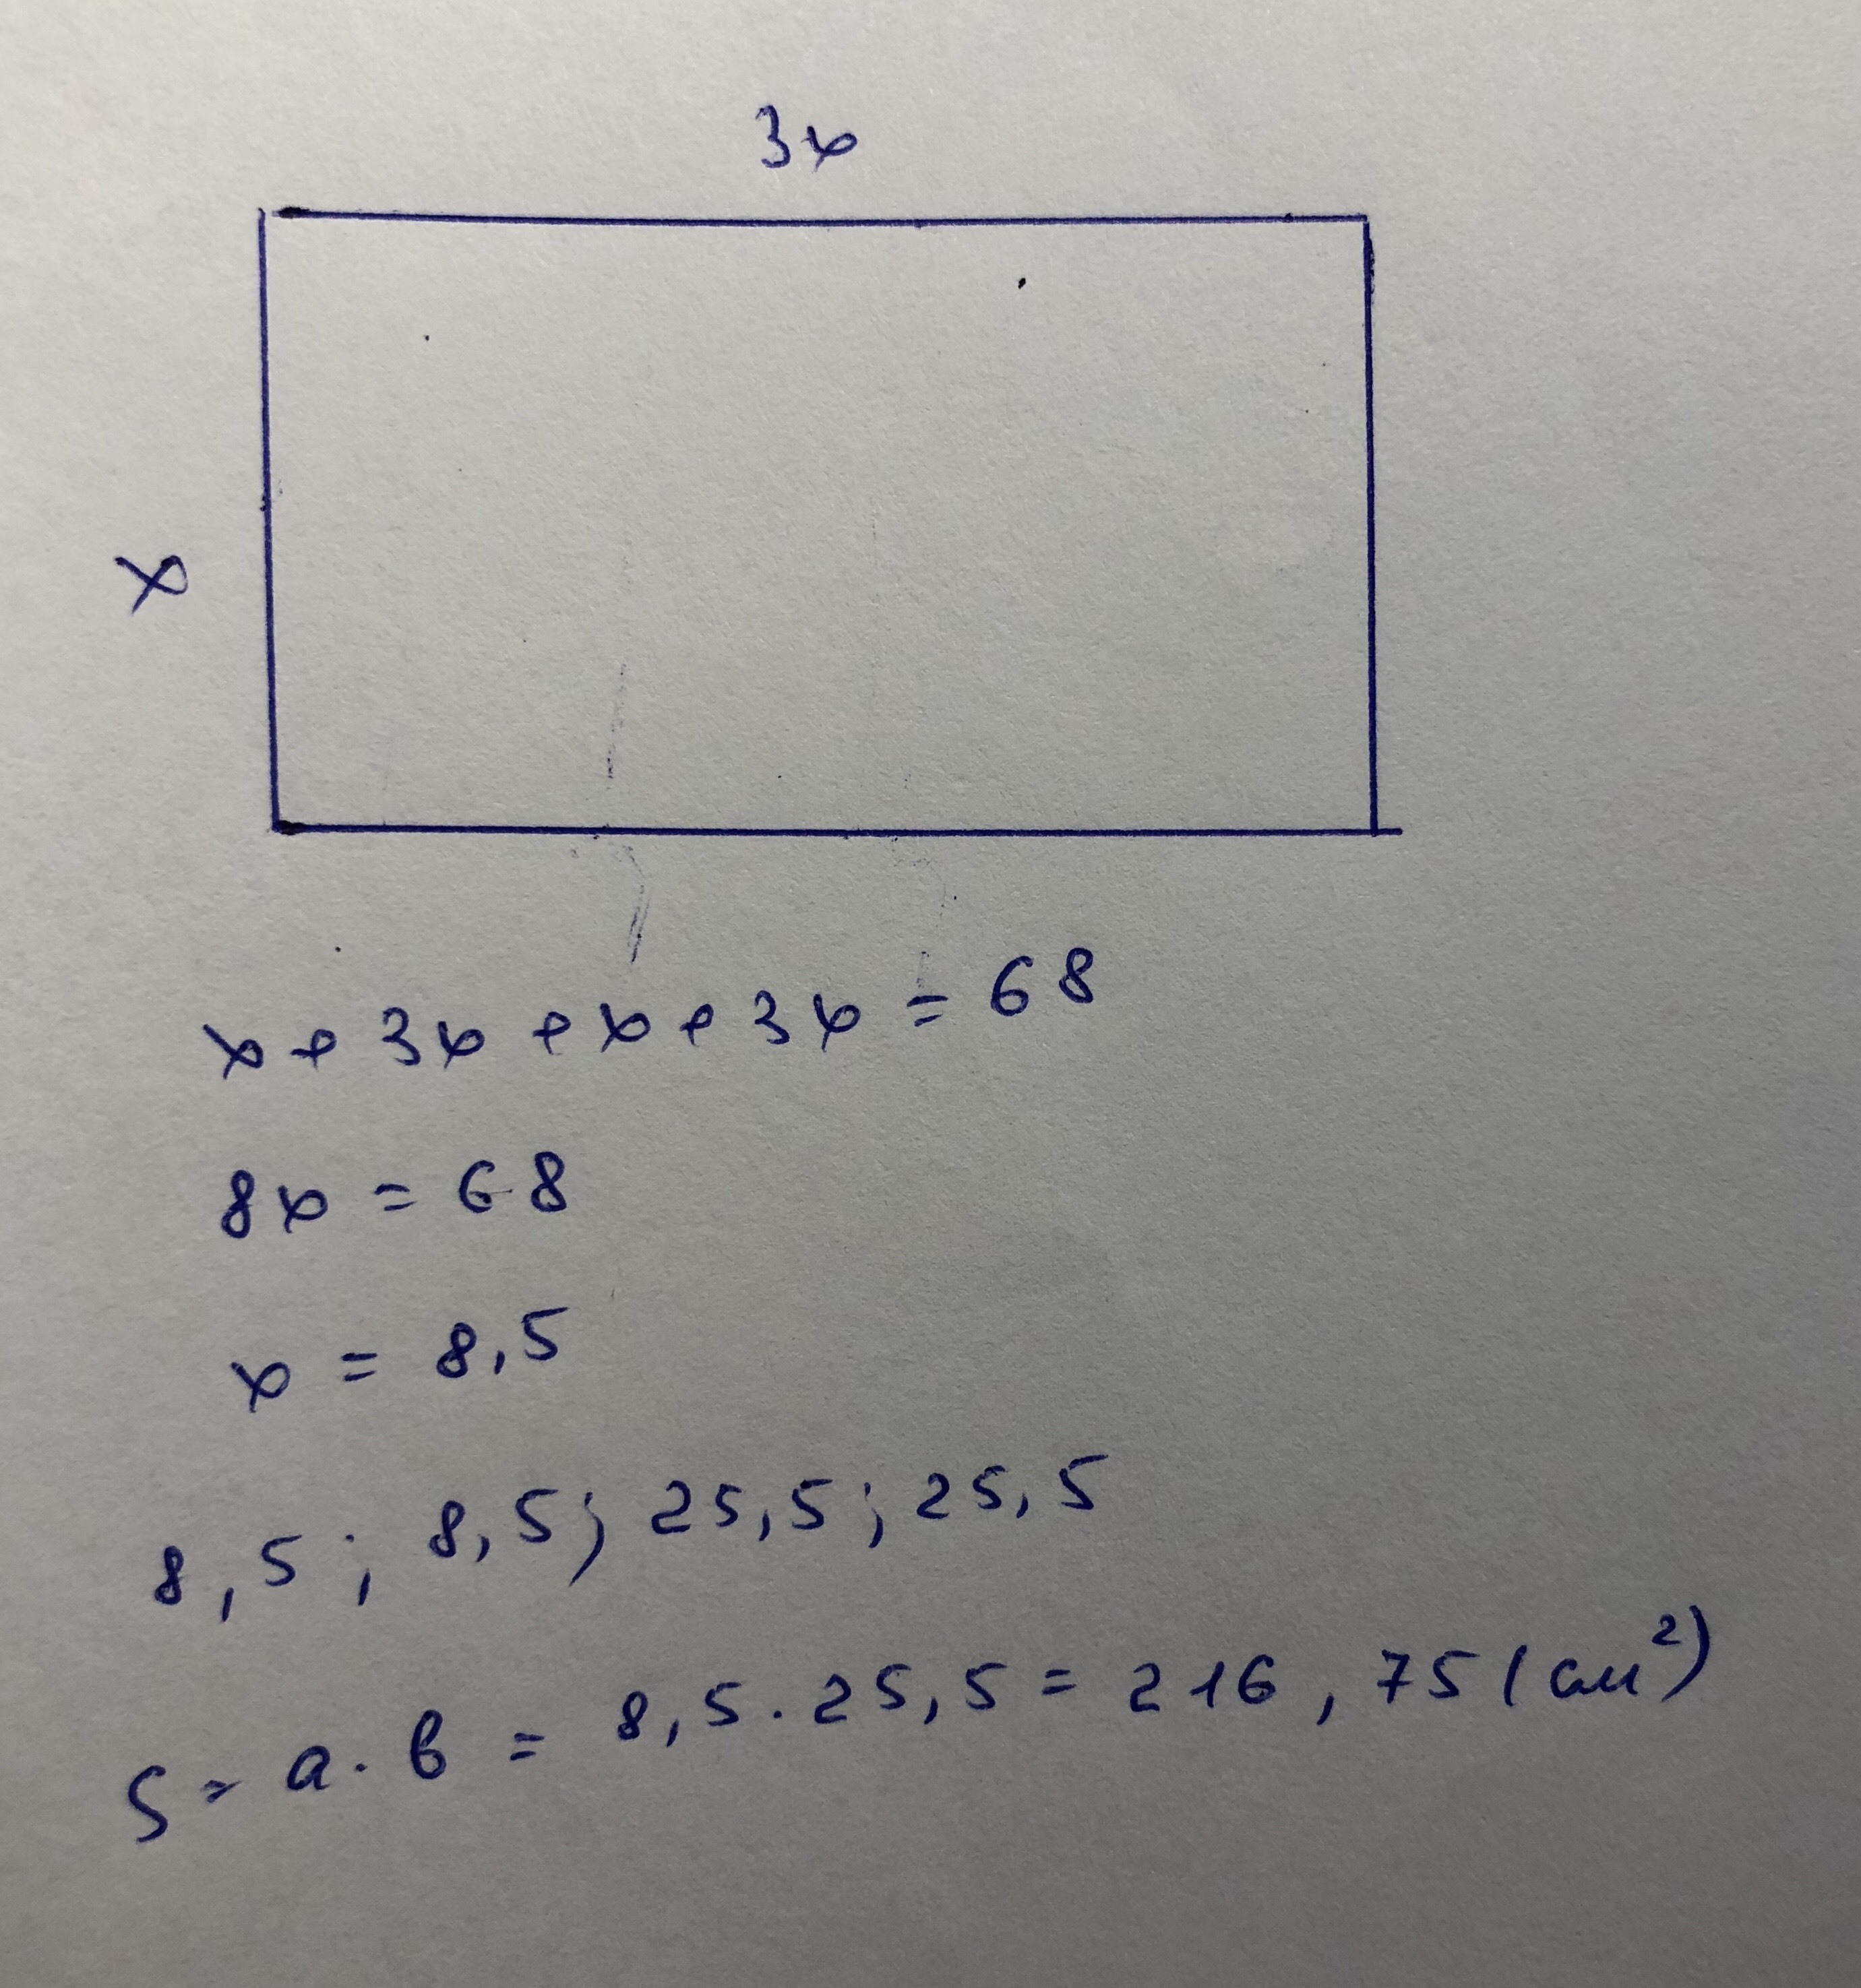 3x
x
x + 3x + x + 3x = 68
8x = 68
x = 8,5
8,5; 8,5; 25,5; 25,5
S = a · b = 8,5 · 25,5 = 216,75 (см²)